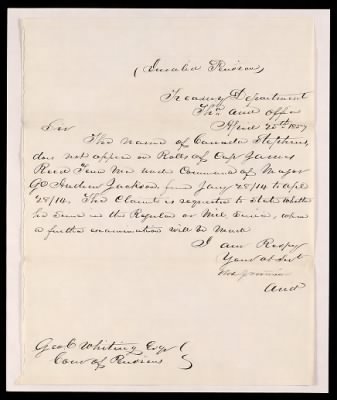 (Invalid Pension)
Treasury Department
3rd Aud offic
April 25th 1857
Sir
The name of Canada Stephens,
does not appear on Rolls of Capt James
Reed Tenn Mil under Command of Major
Gl Andrew Jackson from Jany 28/14 to apl
28/14. The Claimt is requested to state whether
he served in the Regular or Mil Service, when
a further examination will be made
I am Respy
Your obt Svt
Audt
Geo C Whiting Esqr
Com of Pensions